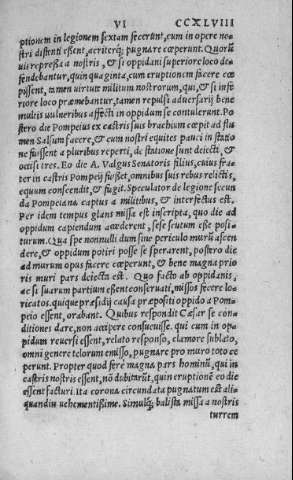 VI CCXLVIII
ptionem in legionem sextam fecerunt, cum in opere no
stri distenti essent, acriterq; pugnare cœperunt. Quorũ
ui repressa a nostris, & si oppidani superiore loco de-
fendebantur, quinquaginta, cum eruptionem facere cœ
pissent, tamen uirtute militum nostrorum, qui, & si infe
riore loco præmebantur, tamen repulsi aduersarij bene
multis uulneribus affecti in oppidum se contulerunt. Po
stero die Pompeius ex castris suis brachium cœpit ad flu
men Salsum facere, & cum nostri equites pauci in statio
ne fuissent a pluribus reperti, de statione sunt deiecti, &
occisi tres. Eo die A. Valgus Senatoris filius, cuius fra-
ter in castris Pompeij fuisset, omnibus suis rebus relictis,
equum conscendit, & fugit. Speculator de legione secun
da Pompeiana captus a militibus, & interfectus est.
Per idem tempus glans missa est inscripta, quo die ad
oppidum capiendum accederent, sese scutum esse posi-
turum. Qua spe nonnulli dum sine periculo murũ ascen
dere, & oppidum potiri posse se sperarent, postero die
ad murum opus facere cœperunt, & bene magna prio
ris muri pars deiecta est. Quo facto ab oppidanis,
ac si suarum partium essent conseruati, missos facere lo-
ricatos. quique præsidij causa præpositi oppido a Pom-
peio essent, orabant. Quibus respondit Cæsar se con-
ditiones dare, non accipere consueuisse. qui cum in op-
pidum reuersi essent, relato responso, clamore sublato,
omni genere telorum emisso, pugnare pro muro toto cœ
perunt. Propter quod ferè magna pars hominũ, qui in
castris nostris essent, nõ dubitarũt, quin eruptionẽ eo die
essent facturi. Ita corona circundata pugnatum est ali-
quandiu uehementissime. Simulq; balista missa a nostris
turrem